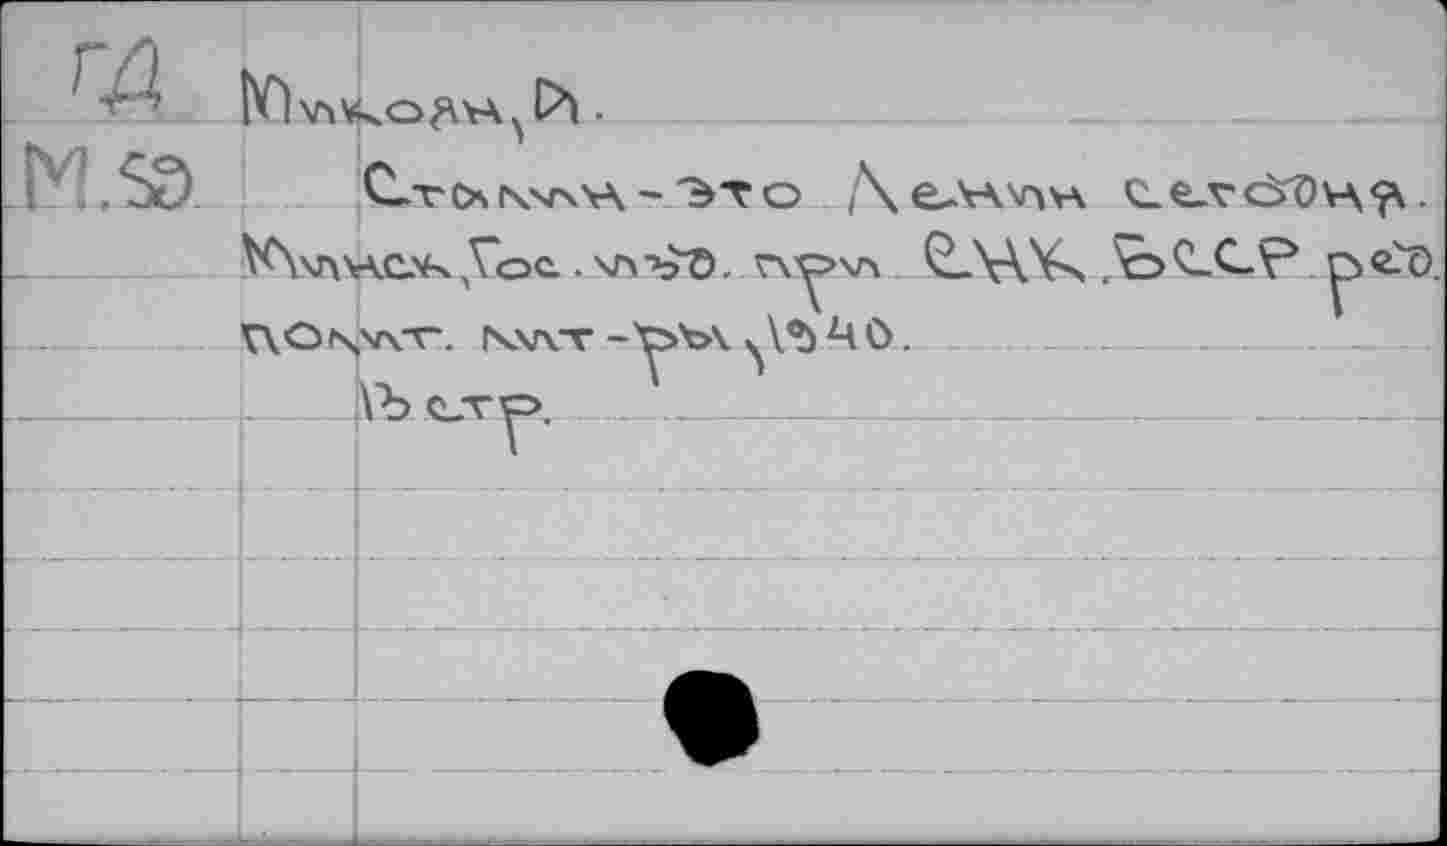 ГД
М.59
Микоян, А.
Сталин - это Ленин сегодня.
Минск, Гос. изд. при СНК БССР ред.
полит. лит-ры, 1940.
13 стр.